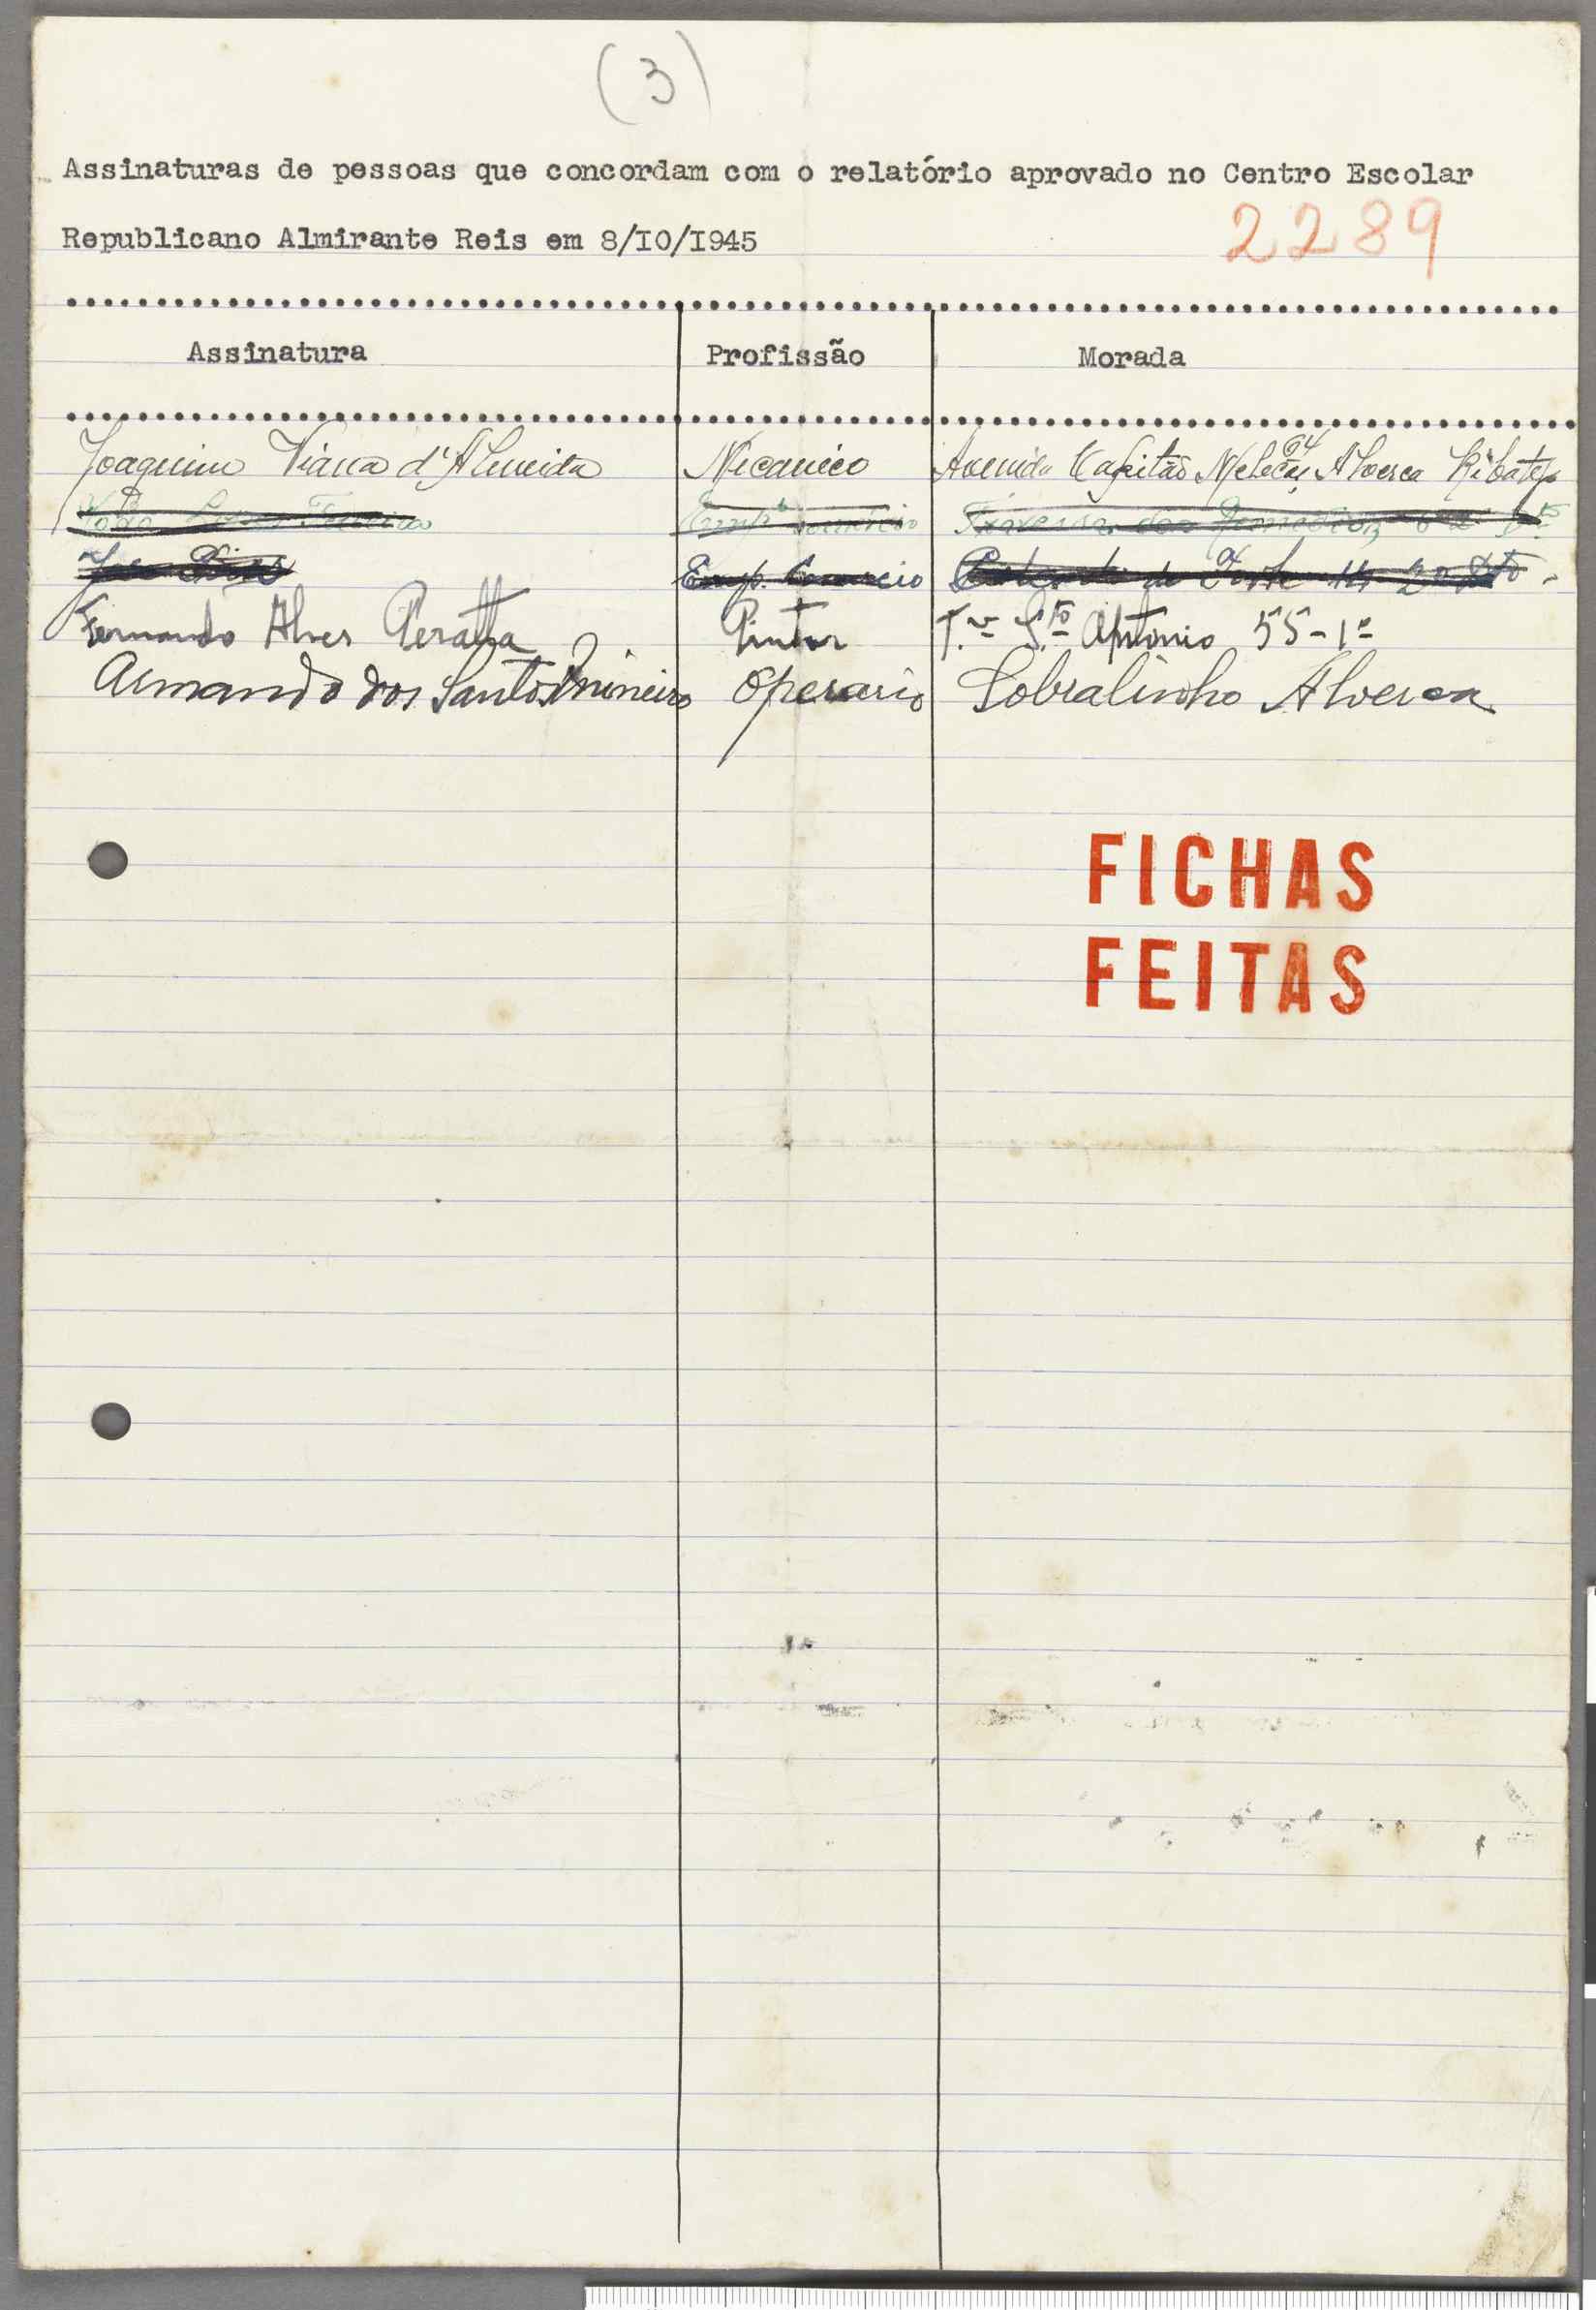 (3)
Assinaturas de pessoas que concordam com o relatório aprovado no Centro Escolar
Republicano Almirante Reis em 8/IO/I945
2289
Assinatura Profissão Morada
Joaquim Viana d'Almeida Mecanico Avenida Capitão Meleças 64 Alverca Ribatejo
João Lopes Ferreira Travessa das
Dias Emp. Comercio 2º Dto
Fernando Alves Peralta Pintor T.va S.to António 55-1º
Armando dos Santos Operario Sobralinho Alverca
FICHAS
FEITAS